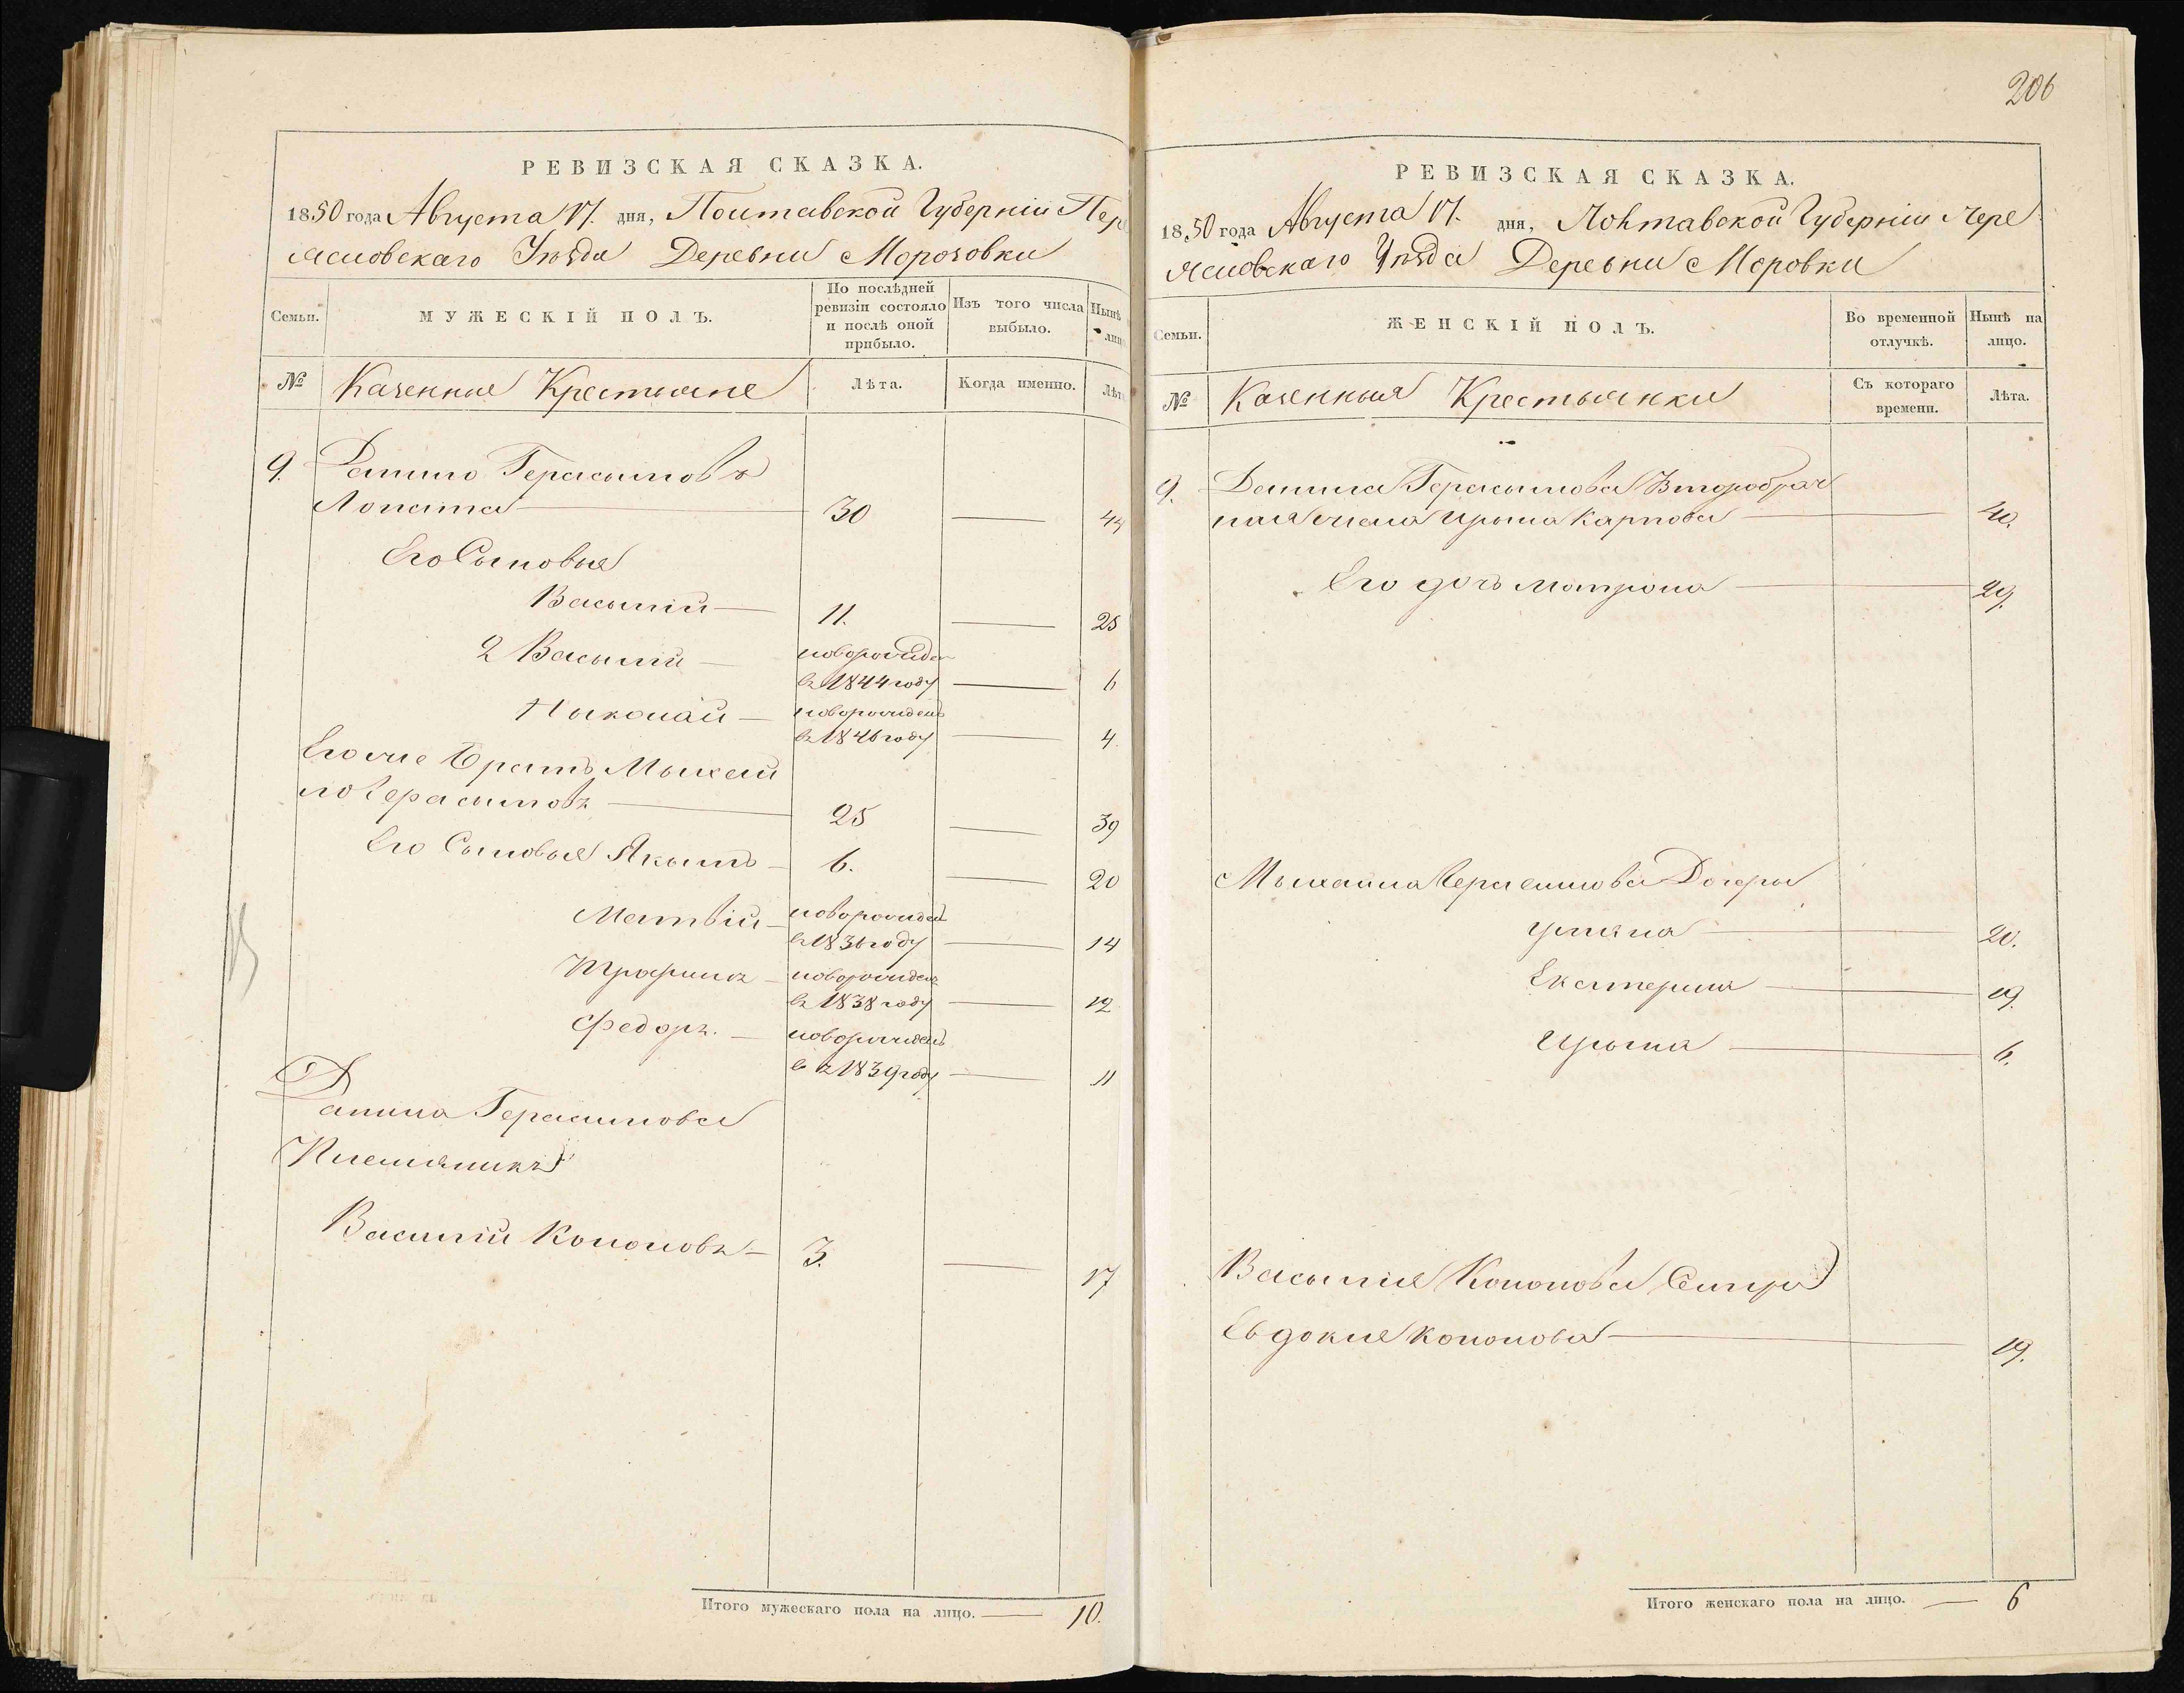 РЕВИЗСКАЯ СКАЗКА.
1850 года Августа 17. дня, Полтавской Губерніи Пере
яславскаго Уезда Деревни Морозовки
Семьи.
МУЖЕСКІЙ ПОЛЪ.
По послѣдней ревизіи состояло и послѣ оной прибыло.
Изъ того числа выбыло.
Нынѣ лицо
№
Казенные Крестьяне
Лѣта.
Когда именно.
Лѣта
9. Данило Герасимовъ
Лопата — 30 — 44
Его Сыновья
Василій — 11. — 25
2 Василій — новорожден
въ 1844 году — 6
Николай — новорожденъ
въ 1846 году — 4.
Его же братъ Михай
ло Герасимовъ — 25 — 39
Его Сыновья Якимъ — 6. — 20
Матвій — новорожден
въ 1836 году — 14
Трофимъ — новорожденъ
въ 1838 году — 12
Федоръ. — новорожденъ
въ 1839 году — 11
Данила Герасимова
Племянникъ
Василій Кононовъ — 3. — 17
Итого мужескаго пола на лицо. — 10.
206
РЕВИЗСКАЯ СКАЗКА.
1850 года Августа 17. дня, Полтавской Губерніи Пере
яславскаго Уезда Деревни Моровки
Семьи.
ЖЕНСКІЙ ПОЛЪ.
Во временной отлучкѣ.
Нынѣ на лицо.
№
Казенныя Крестьянки
Съ котораго времени.
Лѣта.
9. Данила Герасимова Второбрач
ная жена Ирина Карпова — 40.
Его дочь Матрона — 29.
Михаила Герасимова Дочери
Ульяна — 20.
Екатерина — 19.
Ирина — 6.
Василія Кононова Сестра
Евдокия Кононова — 19.
Итого женскаго пола на лицо. — 6